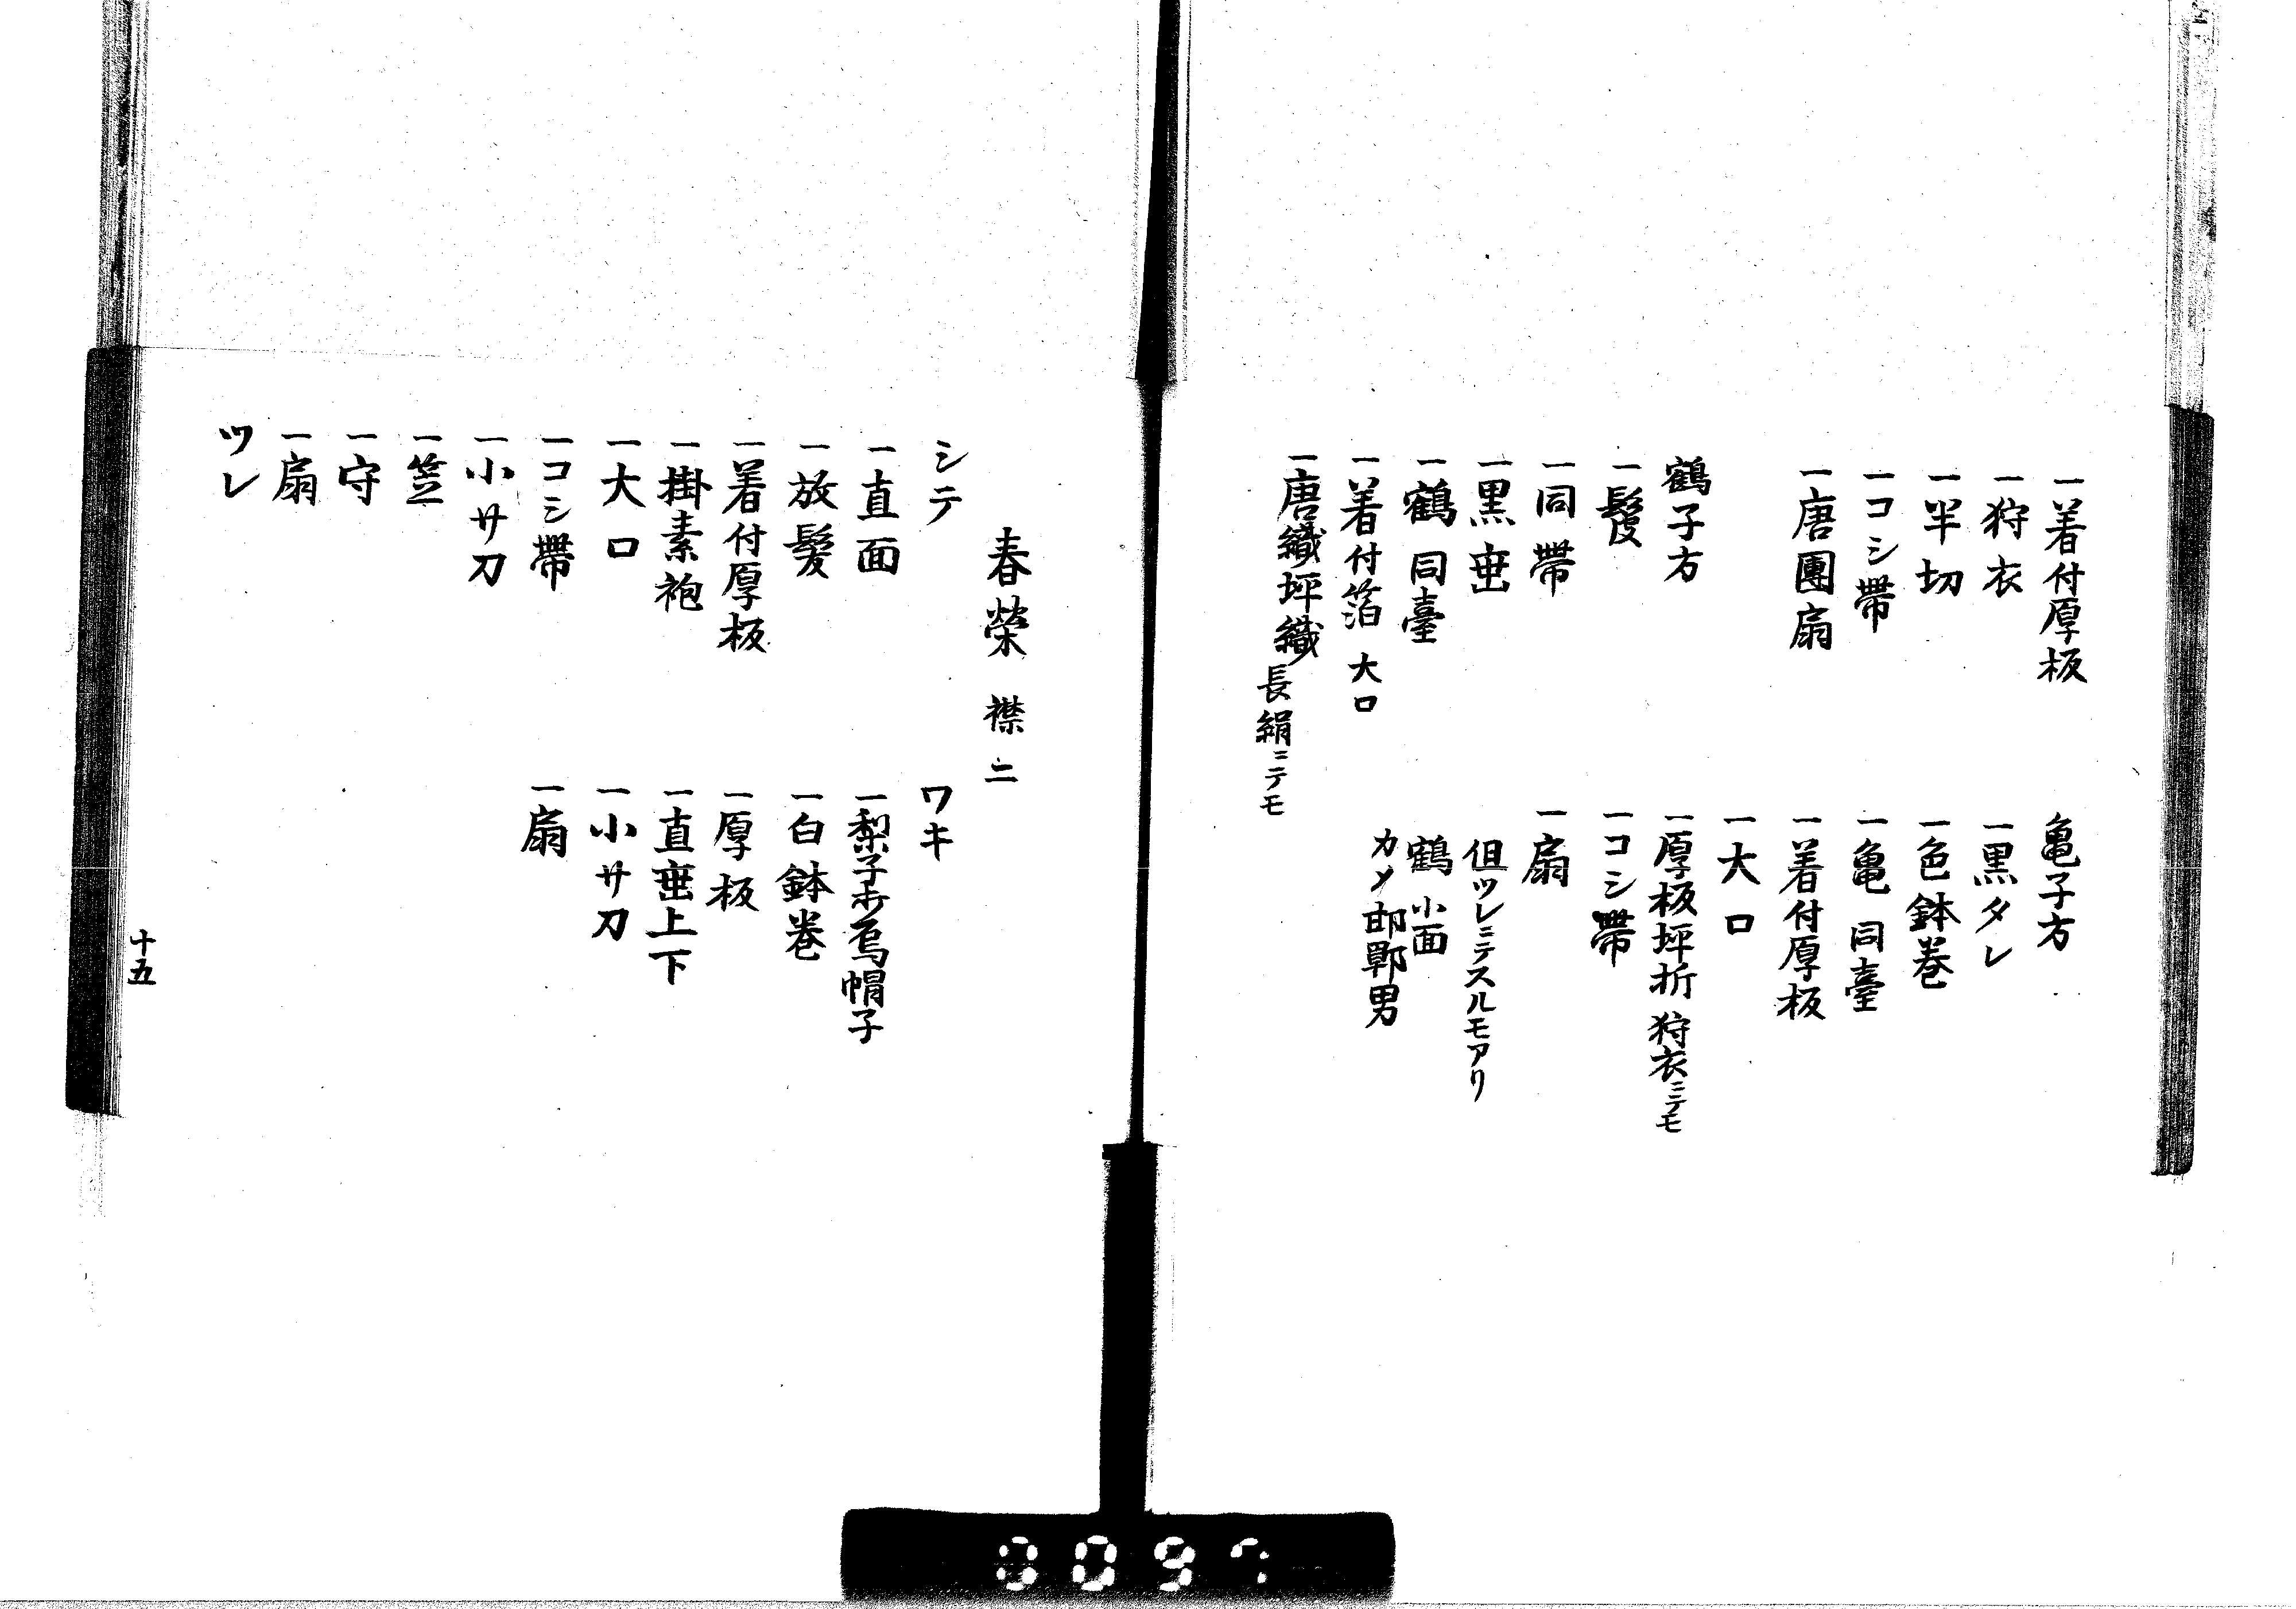 一着付厚板
一狩衣
一半切
一コシ帶
一唐團扇
鶴子方
一鬘
一同帶
一黒垂
一鶴 同臺
一着付箔 大口
一唐織坪織 長絹ニテモ
亀子方
一黒タレ
一色鉢巻
一亀 同臺
一着付厚板
一大口
一厚板坪折 狩衣ニテモ
一コシ帶
一扇
但ツレニテスルモアリ
鶴 小面
カメ 邯鄲男
春榮 襟二
シテ
一直面
一放髪
一着付厚板
一掛素袍
一大口
一コシ帶
一小サ刀
一笠
一守
一扇
ツレ
ワキ
一梨子打烏帽子
一白鉢巻
一厚板
一直垂上下
一小サ刀
一扇
十五
0097